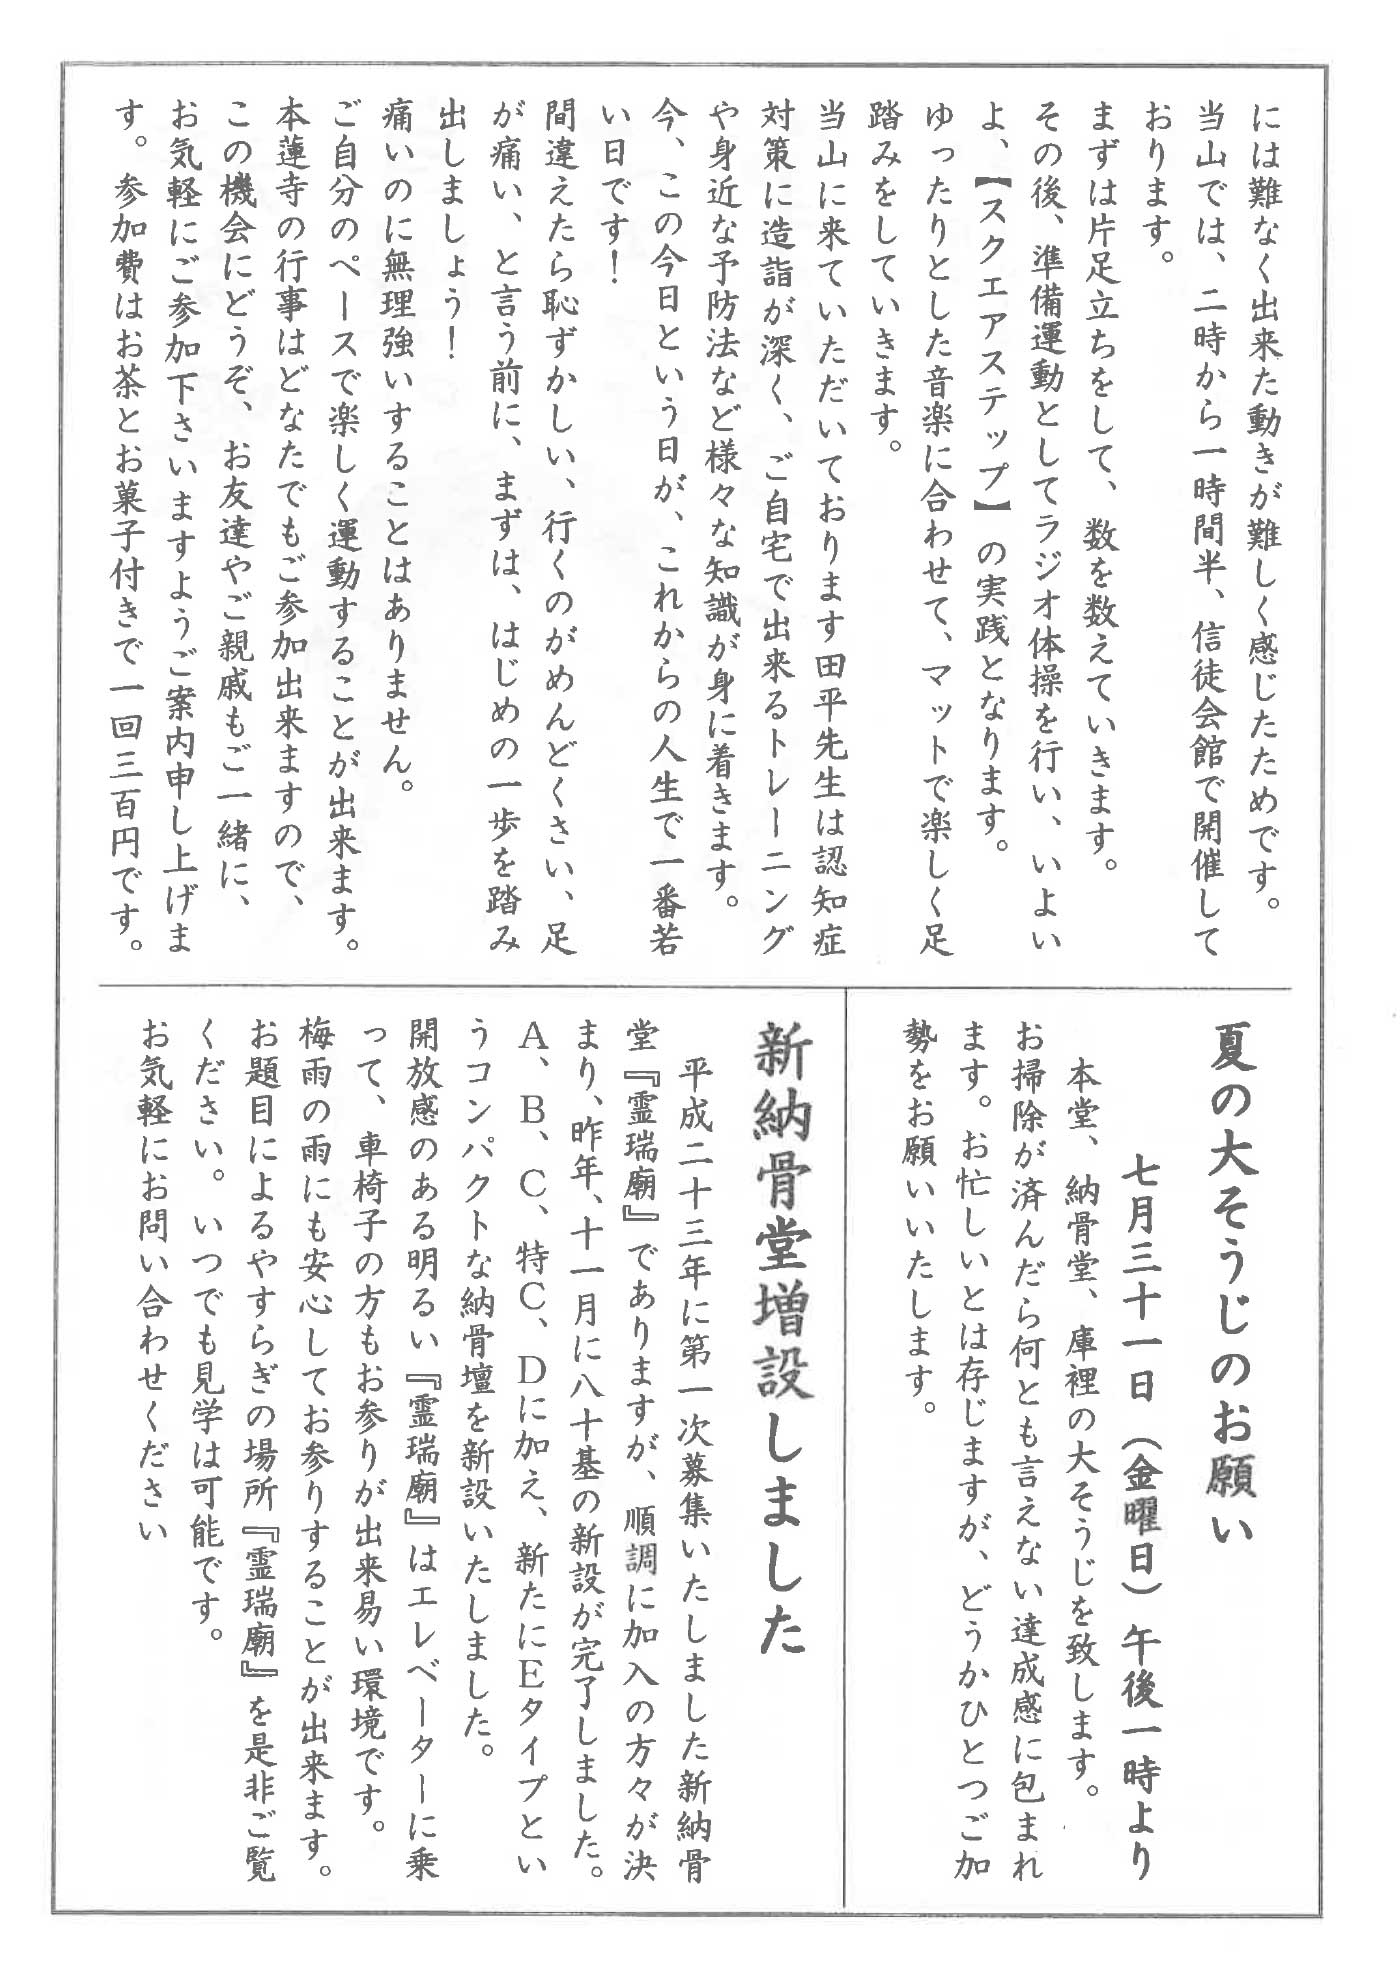 には難なく出来た動きが難しく感じたためです。
当山では、二時から一時間半、信徒会館で開催して
おります。
まずは片足立ちをして、数を数えていきます。
その後、準備運動としてラジオ体操を行い、いよい
よ、【スクエアステップ】の実践となります。
ゆったりとした音楽に合わせて、マットで楽しく足
踏みをしていきます。
当山に来ていただいております田平先生は認知症
対策に造詣が深く、ご自宅で出来るトレーニング
や身近な予防法など様々な知識が身に着きます。
今、この今日という日が、これからの人生で一番若
い日です！
間違えたら恥ずかしい、行くのがめんどくさい、足
が痛い、と言う前に、まずは、はじめの一歩を踏み
出しましょう！
痛いのに無理強いすることはありません。
ご自分のペースで楽しく運動することが出来ます。
本蓮寺の行事はどなたでもご参加出来ますので、
この機会にどうぞ、お友達やご親戚もご一緒に、
お気軽にご参加下さいますようご案内申し上げま
す。参加費はお茶とお菓子付きで一回三百円です。
夏の大そうじのお願い
七月三十一日（金曜日）午後一時より
本堂、納骨堂、庫裡の大そうじを致します。
お掃除が済んだら何とも言えない達成感に包まれ
ます。お忙しいとは存じますが、どうかひとつご加
勢をお願いいたします。
新納骨堂増設しました
平成二十三年に第一次募集いたしました新納骨
堂『霊瑞廟』でありますが、順調に加入の方々が決
まり、昨年、十一月に八十基の新設が完了しました。
A、B、C、特C、Dに加え、新たにEタイプとい
うコンパクトな納骨壇を新設いたしました。
開放感のある明るい『霊瑞廟』はエレベーターに乗
って、車椅子の方もお参りが出来易い環境です。
梅雨の雨にも安心してお参りすることが出来ます。
お題目によるやすらぎの場所『霊瑞廟』を是非ご覧
ください。いつでも見学は可能です。
お気軽にお問い合わせください